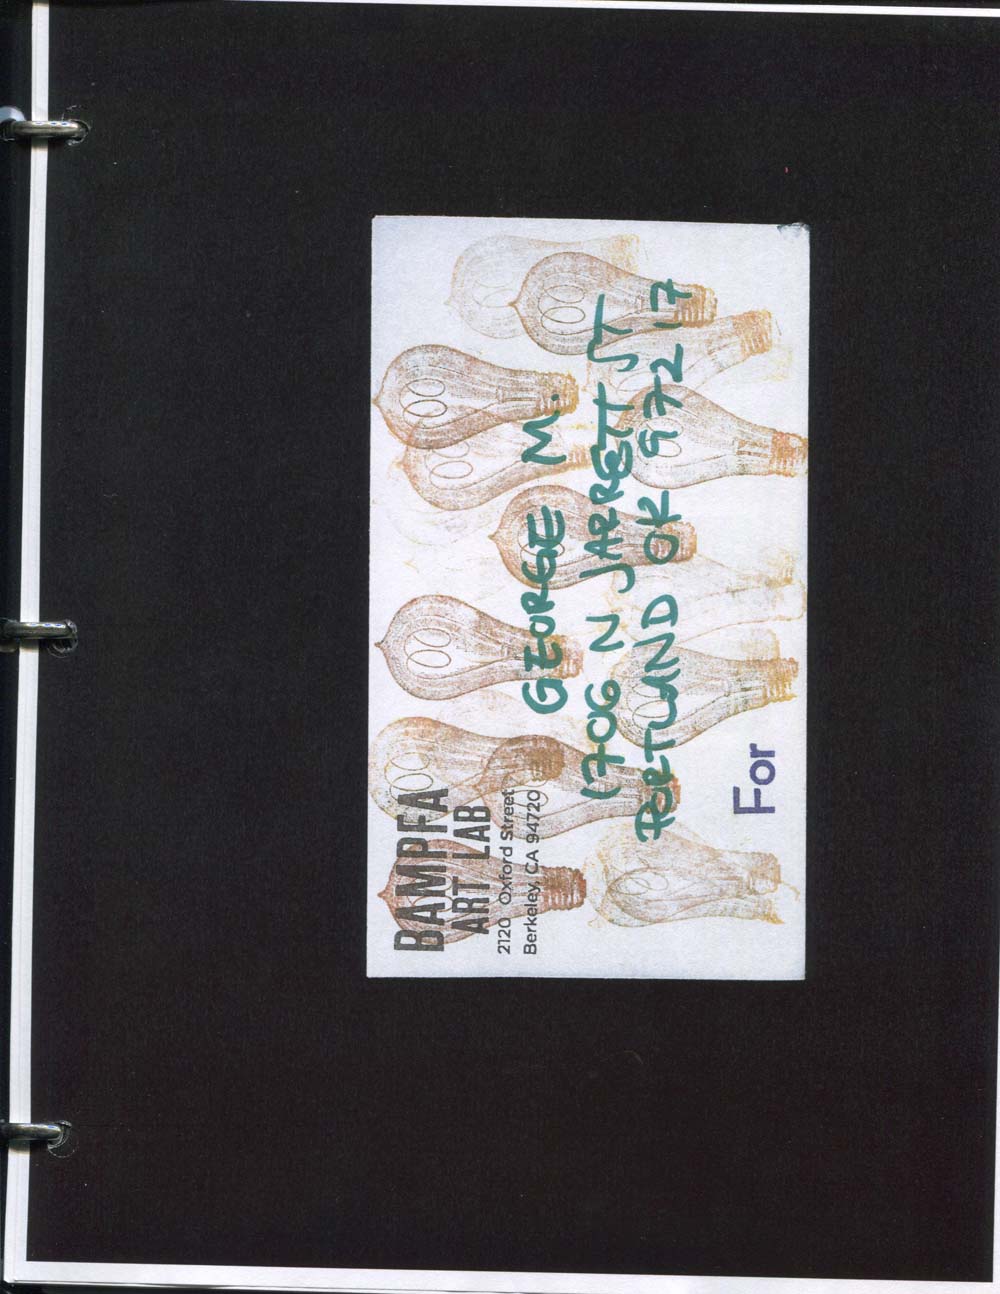 BAMPFA
ART LAB
2120 Oxford Street
Berkeley, CA 94720
GEORGE M.
1706 N JARRETT ST
PORTLAND OR 97217
For